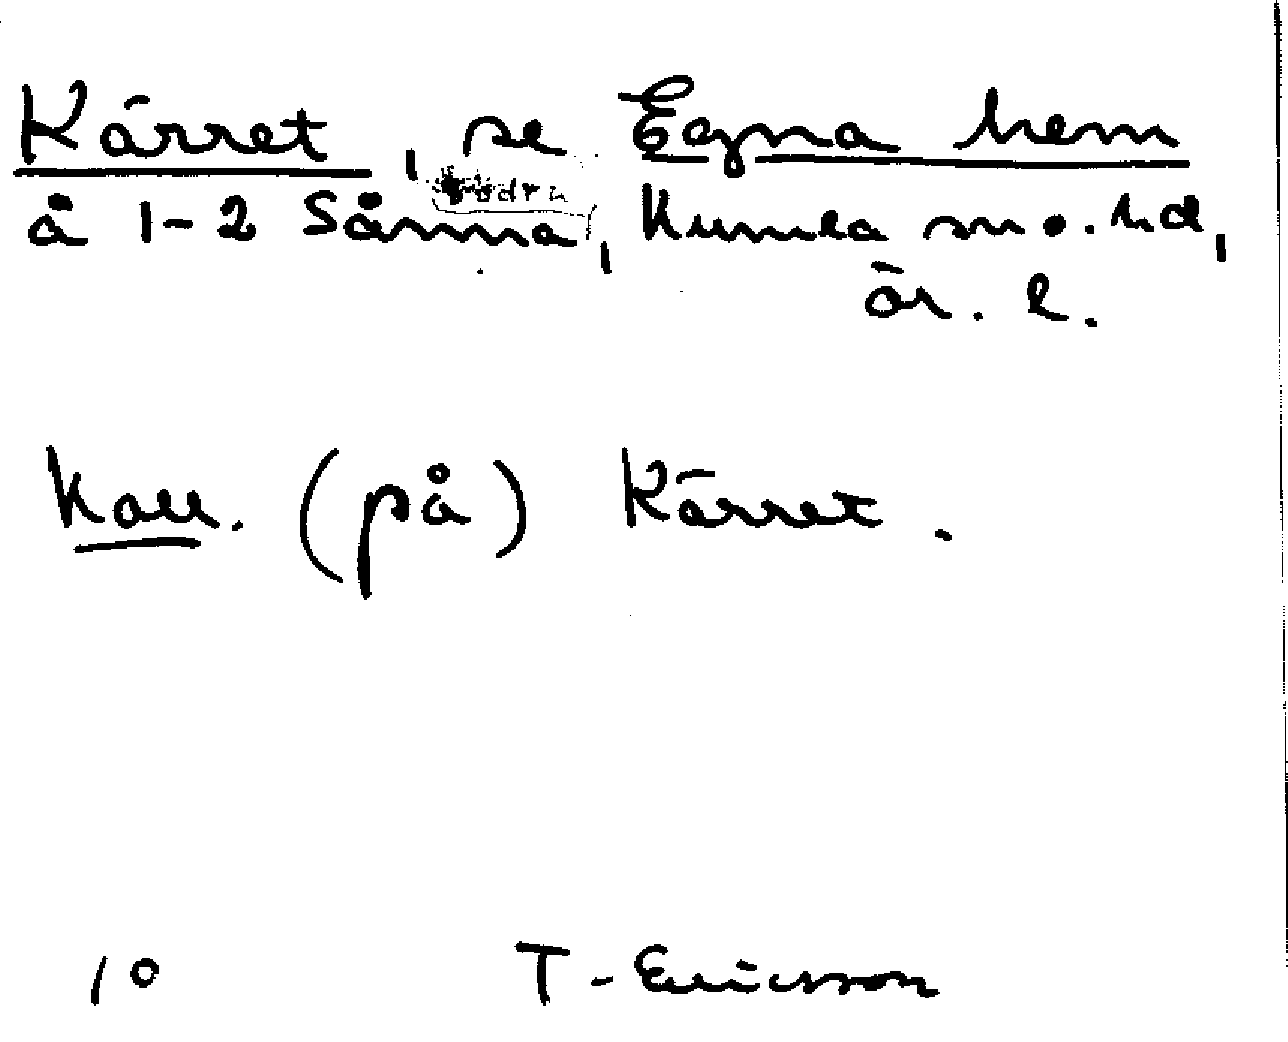 Kärret, se Egna hem
södra
å 1-2 Sånna, Kumla sn o. hd,
Ör. l.
Kall. (på) Kärret.
10 T. Ericsson